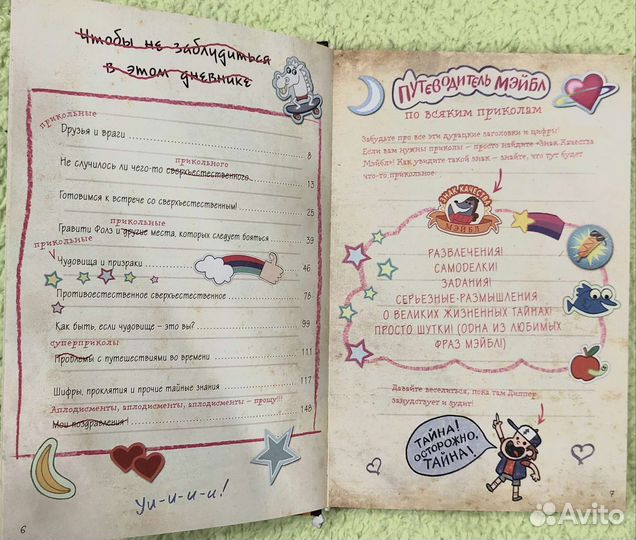 Чтобы не заблудиться
в этом дневнике
прикольные
Друзья и враги 8
прикольного
Не случилось ли чего-то сверхъестественного 13
Готовимся к встрече со сверхъестественным! 25
прикольные
Гравити Фолз и другие места, которых следует бояться 39
прикольные
Чудовища и призраки 46
Противоестественное сверхъестественное 78
Как быть, если чудовище – это вы? 99
суперприколы
Проблемы с путешествиями во времени 111
Шифры, проклятия и прочие тайные знания 117
Аплодисменты, аплодисменты, аплодисменты – прощу!!!
Мои поздравления! 148
Уи-и-и-и!
6
Путеводитель Мэйбл
по всяким приколам
Забудьте про все эти дурацкие заголовки и цифры!
Если вам нужны приколы – просто найдите «Знак Качества
Мэйбл»! Как увидите такой знак – знайте, что тут будет
что-то прикольное.
ЗНАК КАЧЕСТВА
МЭЙБЛ
РАЗВЛЕЧЕНИЯ!
САМОДЕЛКИ!
ЗАДАНИЯ!
СЕРЬЕЗНЫЕ РАЗМЫШЛЕНИЯ
О ВЕЛИКИХ ЖИЗНЕННЫХ ТАЙНАХ!
ПРОСТО ШУТКИ! (ОДНА ИЗ ЛЮБИМЫХ
ФРАЗ МЭЙБЛ!)
Давайте веселиться, пока там Диппер
занудствует и зудит!
ТАЙНА!
ОСТОРОЖНО,
ТАЙНА!
7
Avito